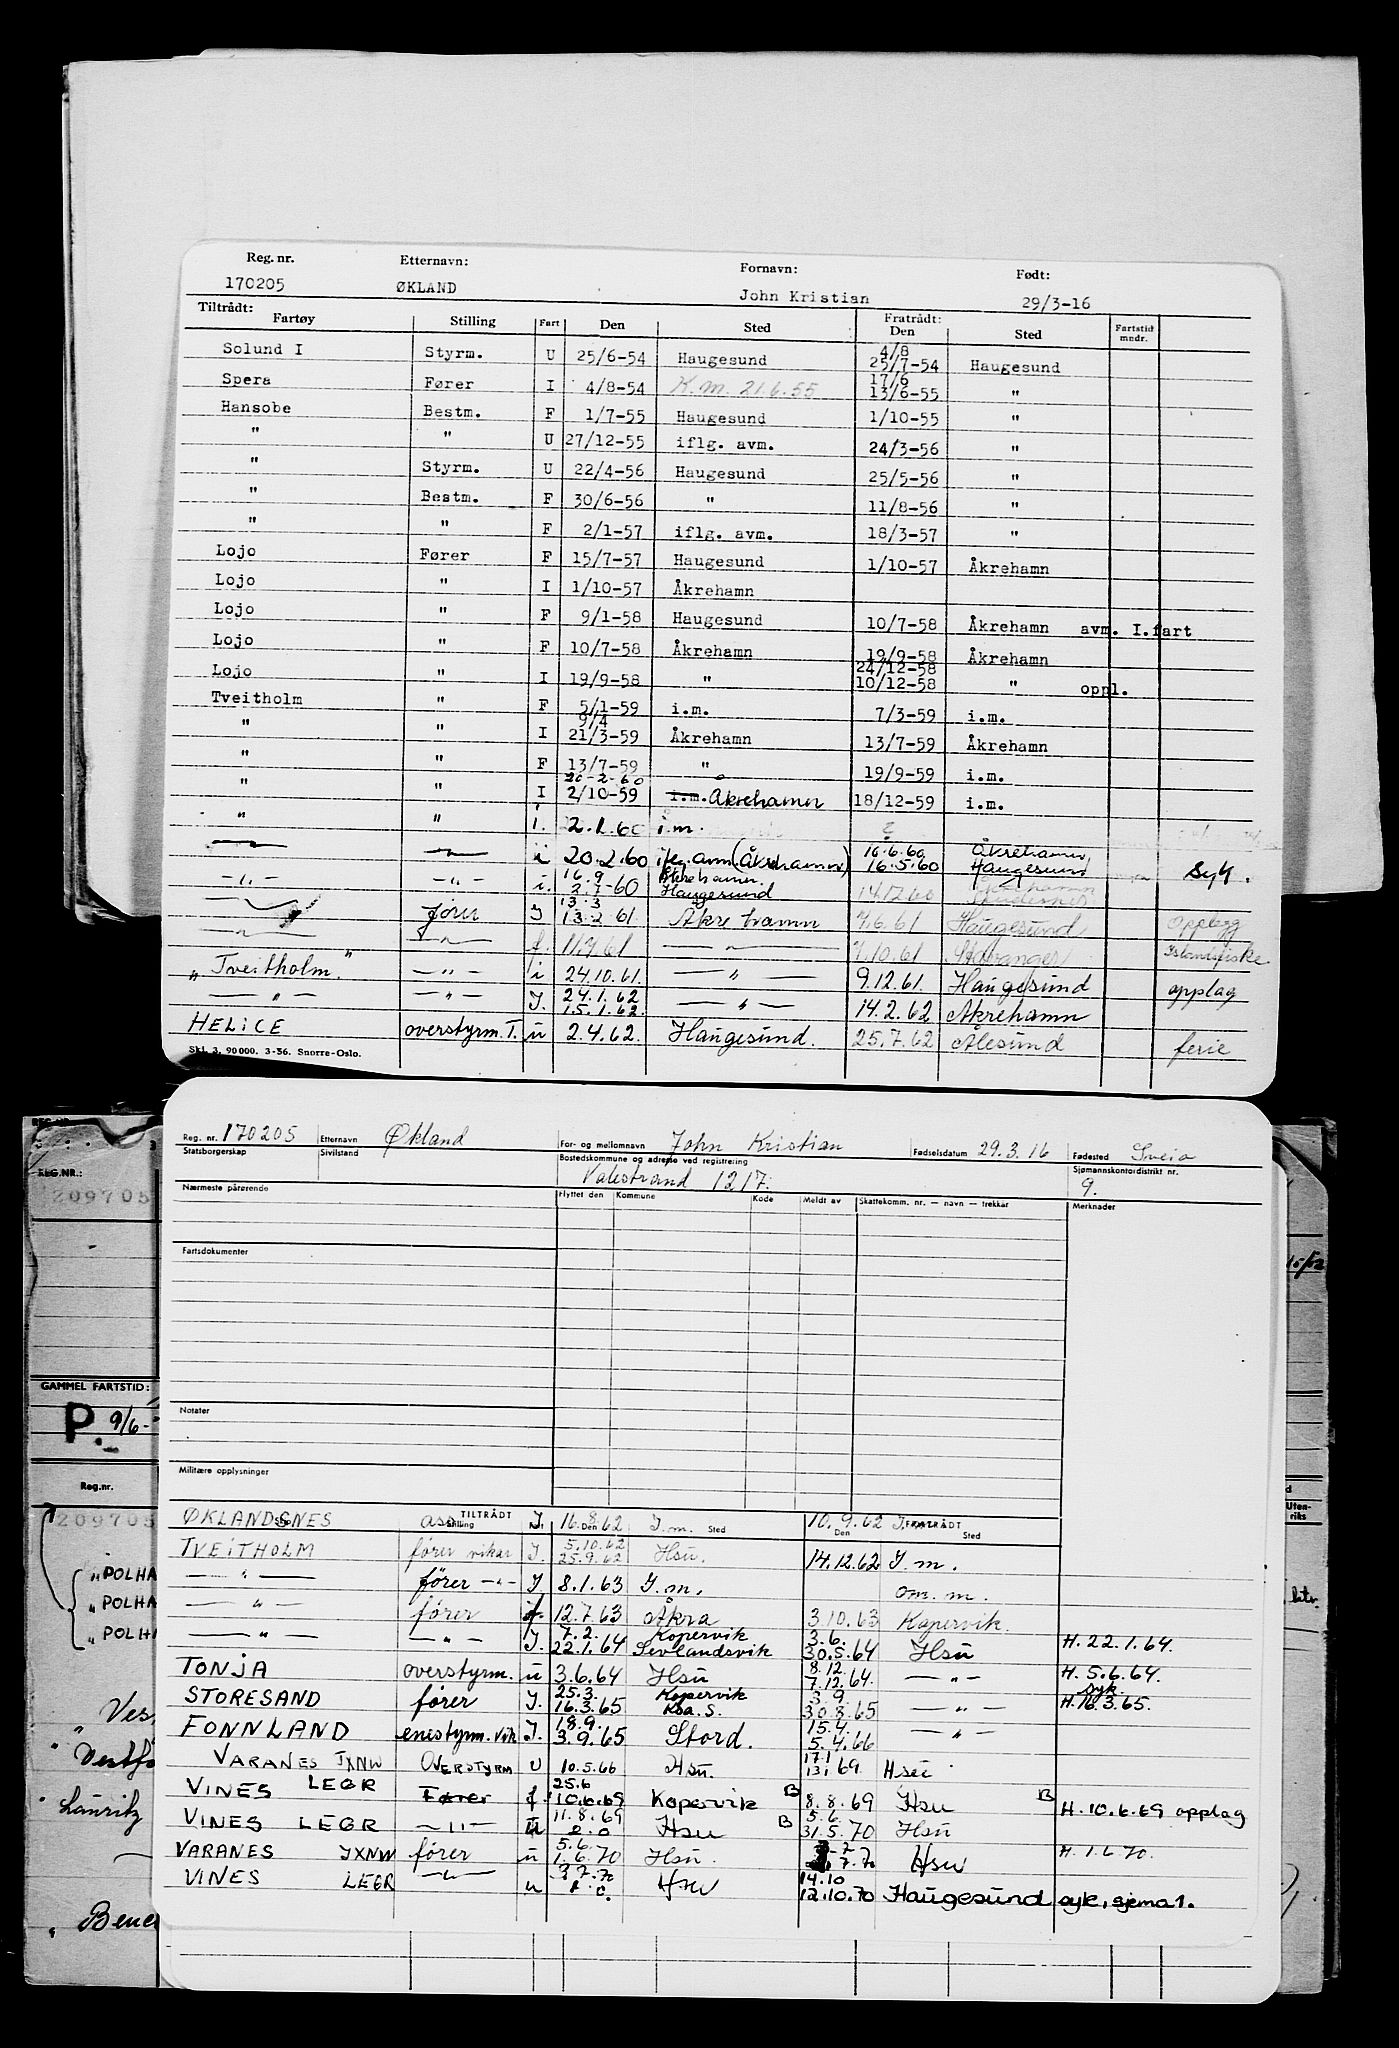 Reg. nr. Etternavn: Fornavn: Født:
170205 ØKLAND John Kristian 29/3-16
Tiltrådt: Fratrådt:
Fartøy Stilling Fart Den Sted Den Sted Fartstid mndr.
Solund I Styrm. U 25/6-54 Haugesund 4/8 25/7-54 Haugesund
Spera Fører I 4/8-54 K.m. 21.6.55 17/6 13/6-55 "
Hansobe Bestm. F 1/7-55 Haugesund 1/10-55 "
" " U 27/12-55 iflg. avm. 24/3-56 "
" Styrm. U 22/4-56 Haugesund 25/5-56 "
" Bestm. F 30/6-56 " 11/8-56 "
" " F 2/1-57 iflg. avm. 18/3-57 "
Lojo Fører F 15/7-57 Haugesund 1/10-57 Åkrehamn
Lojo " I 1/10-57 Åkrehamn
Lojo " F 9/1-58 Haugesund 10/7-58 Åkrehamn avm. I.fart
Lojo " F 10/7-58 Åkrehamn 19/9-58 Åkrehamn
Lojo " I 19/9-58 " 24/12-58 10/12-58 " oppl.
Tveitholm " F 5/1-59 i.m. 7/3-59 i.m.
" " I 9/4 21/3-59 Åkrehamn 13/7-59 Åkrehamn
" " F 13/7-59 " 19/9-59 i.m.
" " I 20-2-60 2/10-59 i.m. Åkrehamn 18/12-59 i.m.
" " i. 22.1.60 i.m.
i 20.2.60 ifg. avm. (Åkrehamn) 16.6.60 16.5.60 Åkrehamn Haugesund syk.
-"- -"- i. 16.9 2.7-60 Åkrehamn Haugesund 14.12.60
fører I 13.3 13.2.61 Åkrehamn 7.6.61 Haugesund Opplegg
f. 11.7.61 7.10.61 Stavanger Islandsfiske
"Tveitholm" -"- i 24.10.61. -"- 9.12.61. Haugesund opplag
-"- -"- I. 24.1.62 15.1.62. -"- 14.2.62 Åkrehamn
HELICE overstyrm. I. u 2.4.62. Haugesund. 25.7.62 Ålesund ferie
Skl. 3. 90000. 3-56. Snorre-Oslo.
Reg. nr. 170205 Etternavn Økland For- og mellomnavn John Kristian Fødselsdatum 29.3.16 Fødested Sveio
Statsborgerskap Sivilstand Bostedskommune og adresse ved registrering Valestrand 1217. Sjømannskontordistrikt nr. 9.
Nærmeste pårørende Flyttet den Kommune Kode Meldt av Skattekomm. nr. — navn — trekkar Merknader
Fartsdokumenter
Notater
Militære opplysninger
TILTRÅDT FRATRÅDT
Stilling Fart Den Sted Den Sted
ØKLANDSNES ass. I 16.8.62 I.m. 10.9.62 I.m.
TVEITHOLM fører vikar I. 5.10.62 25.9.62 Hsu. 14.12.62 I.m.
-"- fører -"- I 8.1.63 I.m. om.m.
-"- fører f. 12.7.63 Åkra 3.10.63 Kopervik.
-"- -"- I. 7.2. 22.1.64 Kopervik Sevlandsvik 3.6. 30.5.64 Hsu H. 22.1.64.
TONJA overstyrm. u 3.6.64 Hsu 8.12 7.12.64. -"- H. 5.6.64. syk.
STORESAND fører I. 25.3. 16.3.65 Kopervik Koa. S. 3.9. 30.8.65 -"- H. 16.3.65.
FONNLAND enestyrm. vik. I. 18.9. 3.9.65 Stord. 15.4. 5.4.66 -"-
VARANES JXNW OVERSTYRM U 10.5.66 Hsu. 17.1 13.1.69. Hsu
VINES LEGR Fører f. 25.6 10.6.69 Kopervik B 8.8.69 Hsu B H. 10.6.69 opplag
VINES LEGR -"- 11.8.69 Hsu B 5.6. 31.5.70 Hsu
VARANES JXNW fører u 5.6. 1.6.70 Hsu. 7.70 Hsu H. 1.6.70.
VINES LEGR -"- u 3.7.70 Hsu 14.10 12.10.70 Haugesund syk, sjema 1.
REG.NR.:
209705
GAMMEL FARTSTID:
P. 9/6-
Reg.nr.
209705
"POLHA
"POLHA
"POLHA
Ves
"Vestfo
"Lauritz
"Bene
Uten-
riks